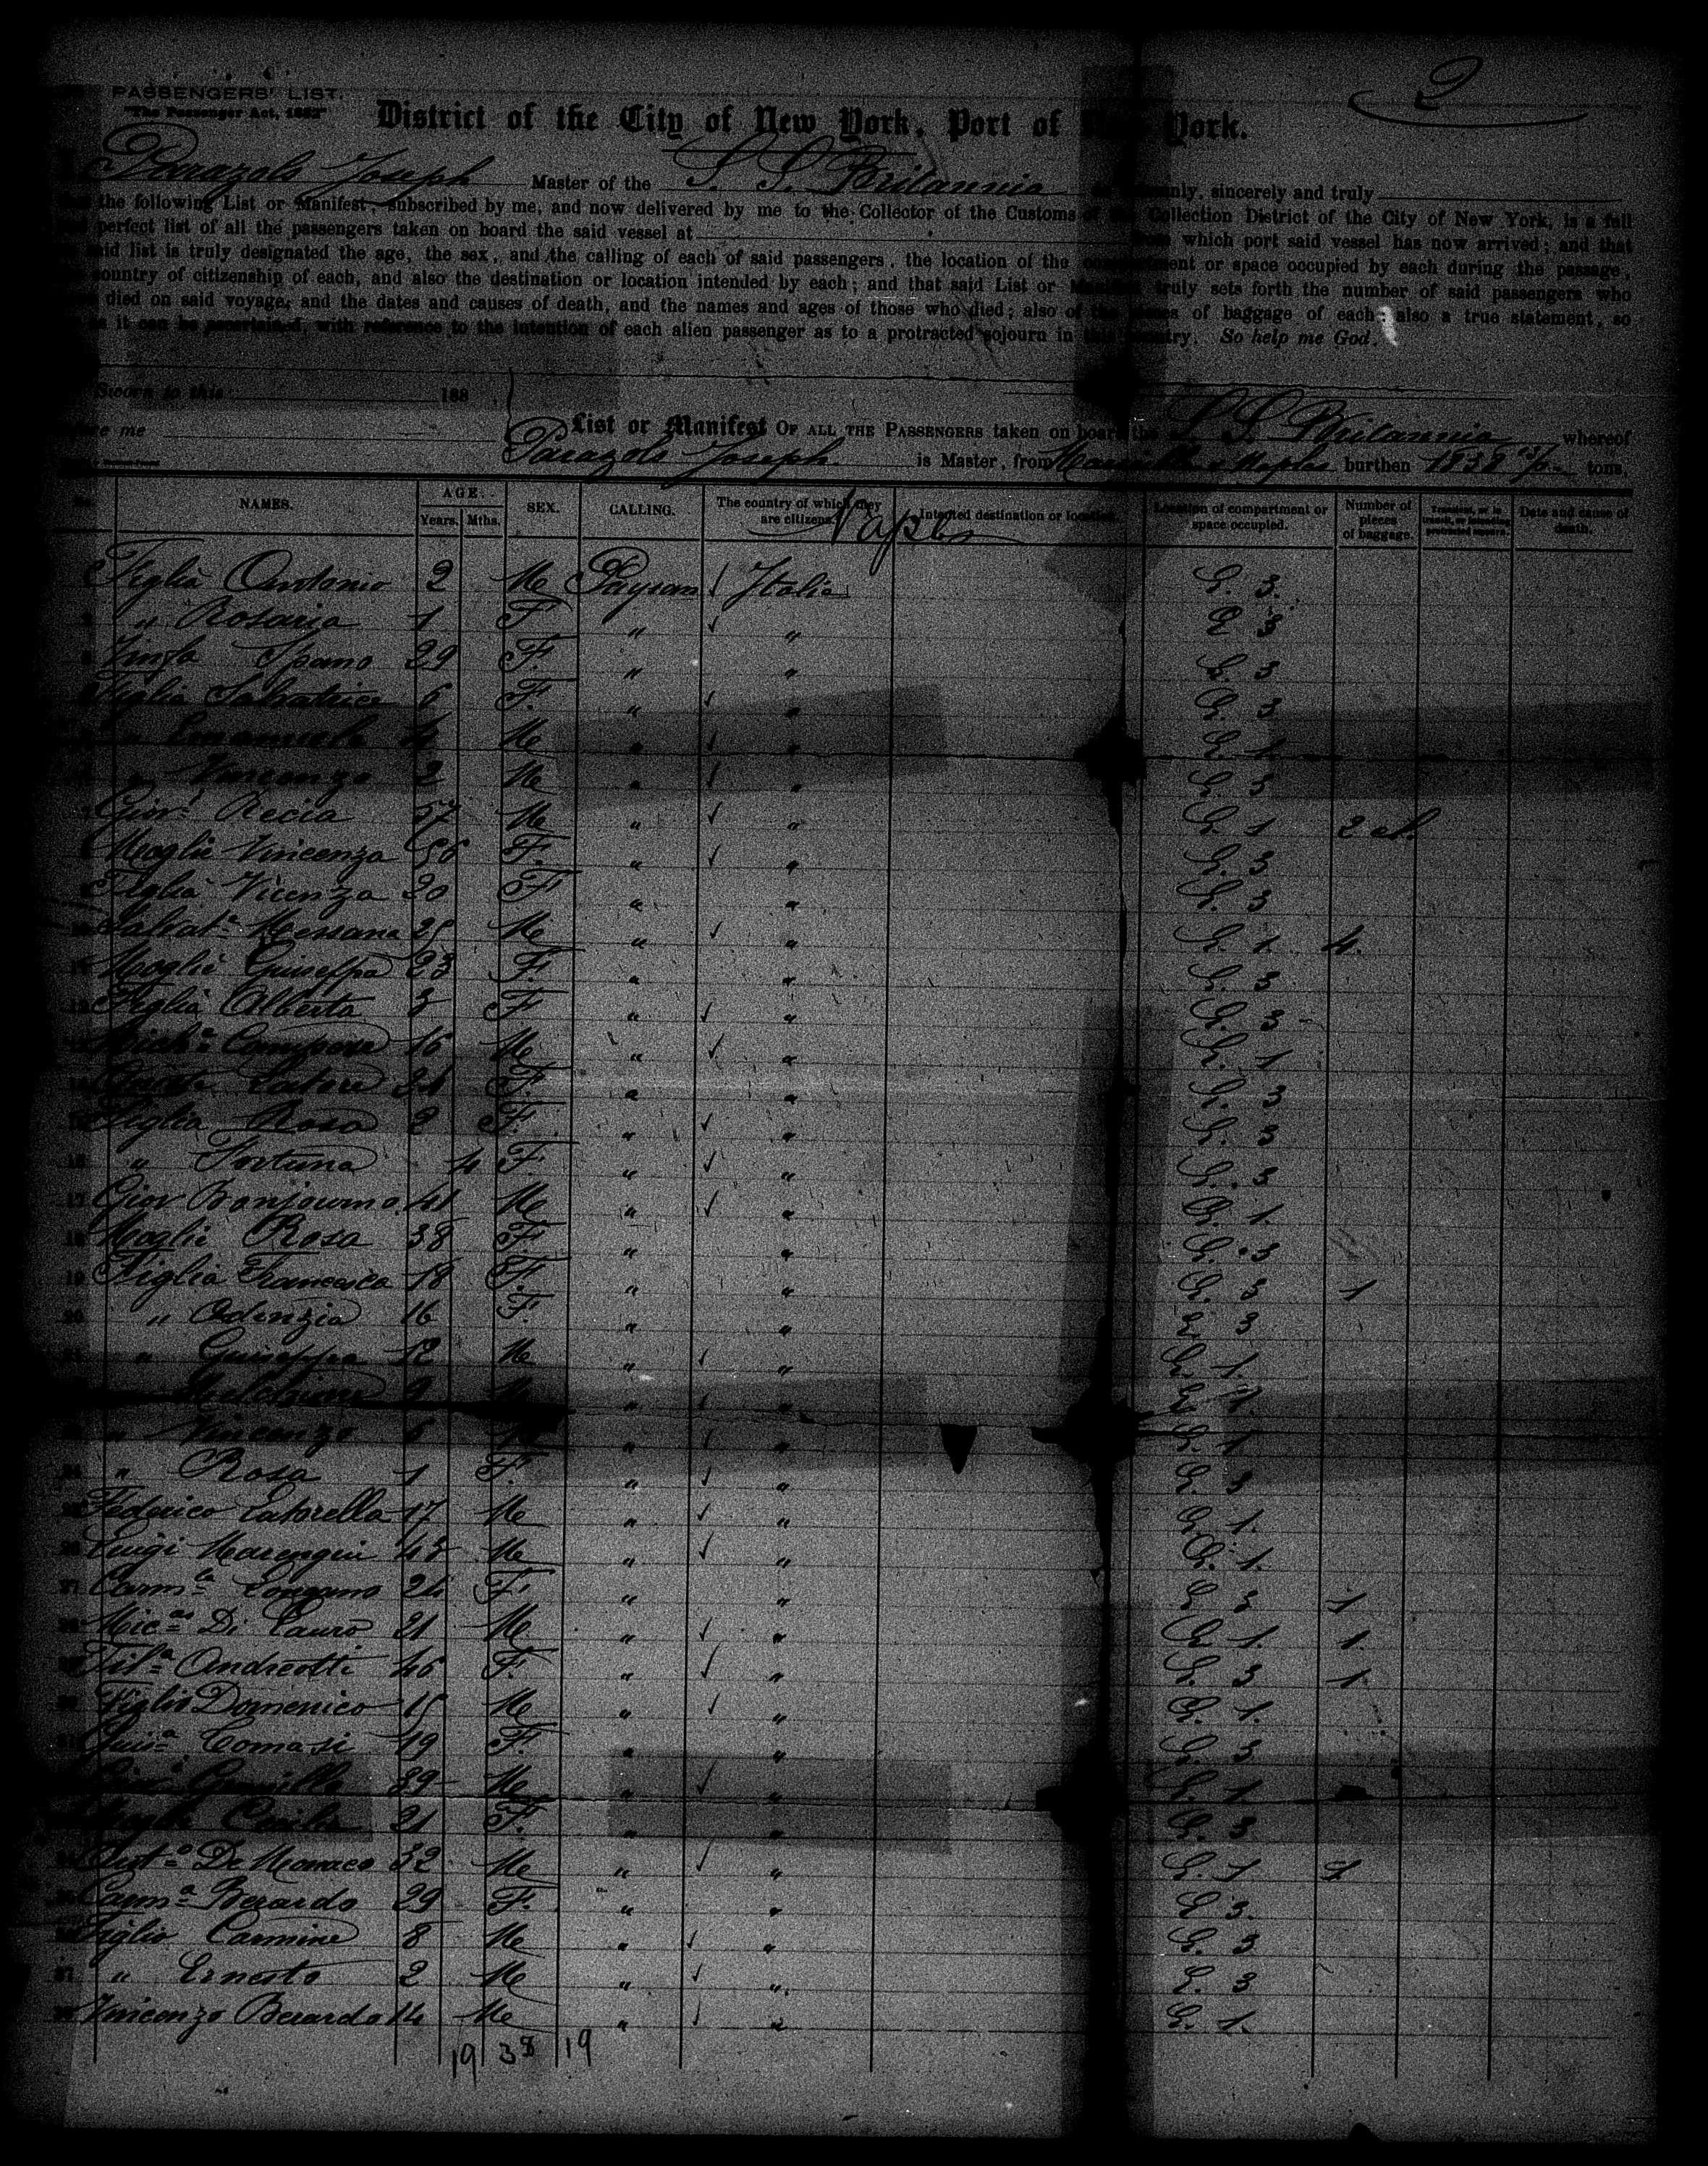 2
PASSENGERS' LIST.
"The Passenger Act, 1882"
District of the City of New York, Port of New York.
I, Parazols Joseph Master of the S. S. Britannia sincerely and truly
the following List or Manifest, subscribed by me, and now delivered by me to the Collector of the Customs of the Collection District of the City of New York, is a full
perfect list of all the passengers taken on board the said vessel at which port said vessel has now arrived; and that
said list is truly designated the age, the sex, and the calling of each of said passengers, the location of the compartment or space occupied by each during the passage,
country of citizenship of each, and also the destination or location intended by each; and that said List or Manifest truly sets forth the number of said passengers who
died on said voyage, and the dates and causes of death, and the names and ages of those who died; also of the pieces of baggage of each; also a true statement, so
as it can be ascertained, with reference to the intention of each alien passenger as to a protracted sojourn in this country. So help me God.
Sworn to this 188
me
List or Manifest OF ALL THE PASSENGERS taken on board the S. S. Britannia whereof
Parazols Joseph is Master, from Marseille & Naples burthen 1838 tons.
NAMES. AGE. Years. Mths. SEX. CALLING. The country of which they are citizens. Intended destination or location. Location of compartment or space occupied. Number of pieces of baggage. Transient, or in transit, or intending protracted sojourn. Date and cause of death.
Naples
Figlia Antonio 2 M Paysan Italia E. 3.
" Rosaria 1 F " " E 3
Spano 29 F. " " E. 3
Figlia Salvatrice 6 F. " " E. 3
" Emanuele 4 M " " E. 1
" Vincenzo 2 M " " E. 3
Giov. Recia 57 M " " E. 1 2
Moglie Vincenza 56 F. " " E. 3
Figlia Vicenza 20 F " " E. 3
Salvat. Messana 25 M " " E. 1 4.
Moglie Guiseppa 23 F. " " E. 3
Figlia Alberta 3 F " " E. 3
16 M " " E. 1
Latore F. " " E. 3
Figlia Rosa 2 F. " " E. 3
16 " Fortuna 4 F. " " E. 3
17 Giov Bonjourno 41 M " " E. 1.
18 Moglie Rosa 38 F. " " E. 3
19 Figlia Francesca 18 F. " " E. 3 1
20 " Odinzia 16 F. " " E. 3
" Guiseppe 12 M " " E. 1.
9 " " E. 1.
" Vincenzo 6 " " E. 1
24 " Rosa 1 F. " " E. 3
Federico Latorella 17 M " " E. 1.
Luigi Marengui 43 M " " E. 1.
27 Carm.a 24 F. " " E 3 1
Di Lauro 21 M " " E. 1. 1.
Fil.a Andreotti 46 F. " " E. 3 1
Figlio Domenico 15 M " " E. 1.
Tomasi 19 F. " " E. 3
39 M " " E. 1
Moglie Cecilia 21 F. " " E. 3
De Monaco 32 M " " E. 1 1
Carm.a Berardo 29 F. " " E 3.
Figlio Carmine 8 M " " E. 3
37 " Ernesto 2 M " " E. 3
Vincenzo Berardo 14 M " " E. 1.
19 38 19